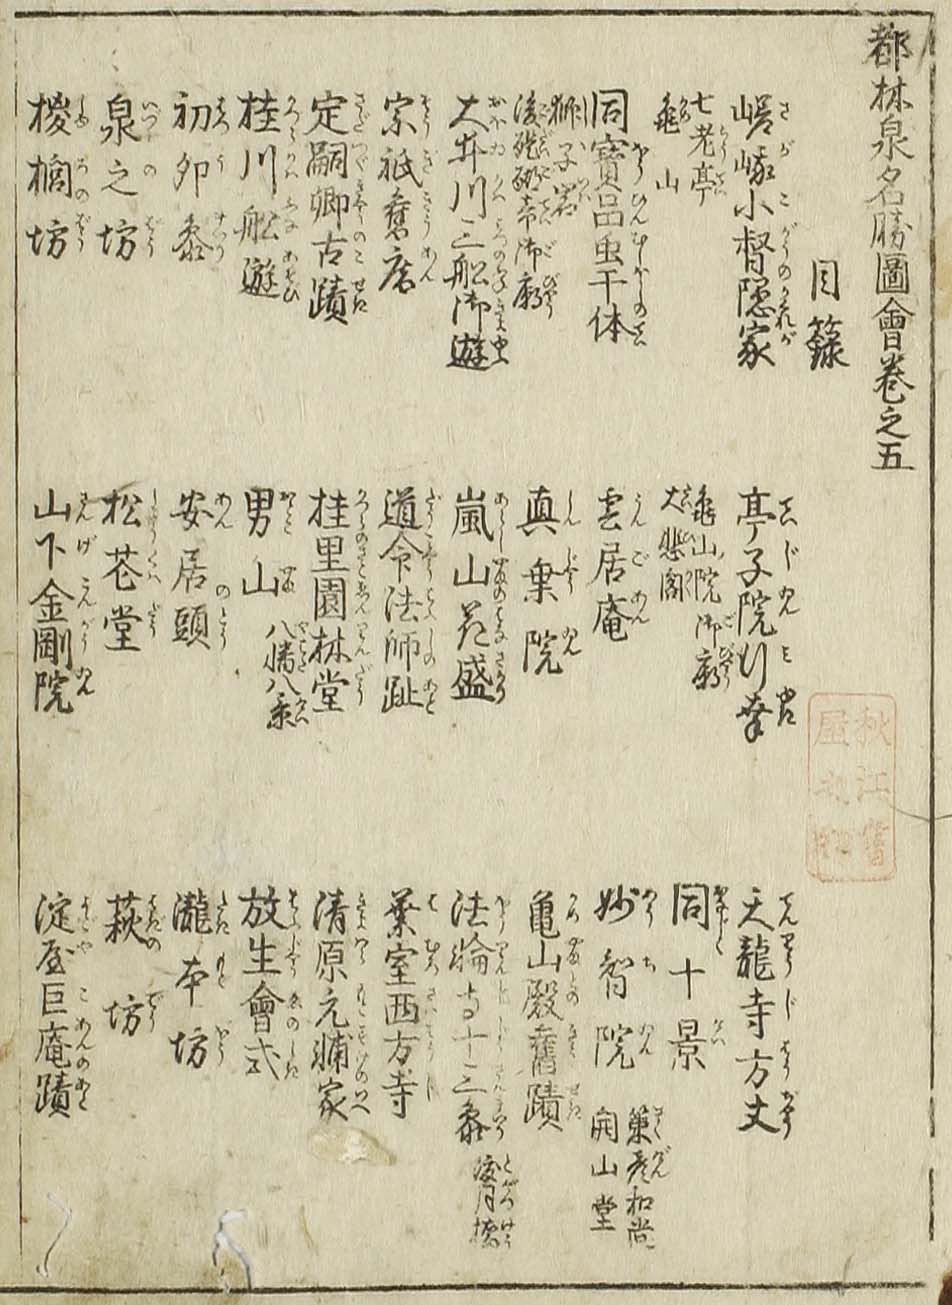 都林泉名勝圖會巻之五
目録
嵯峨小督隠家
亭子院行幸
天龍寺方丈
七老亭
亀山
亀山院御廟
大悲閣
同十景
同寳品虫干体
雲居庵
妙智院
策彦和尚
開山堂
獅子岩
後嵯峨帝御廟
真乗院
亀山殿舊蹟
大井川三船御遊
嵐山花盛
法輪寺十三參
渡月橋
宗祇舊庵
道命法師趾
葉室西方寺
定嗣卿古蹟
桂里園林堂
清原元輔家
桂川舩遊
男山
八幡八景
放生會式
初卯參
安居頭
瀧本坊
泉之坊
松花堂
萩坊
椶櫚坊
山下金剛院
淀屋巨庵蹟